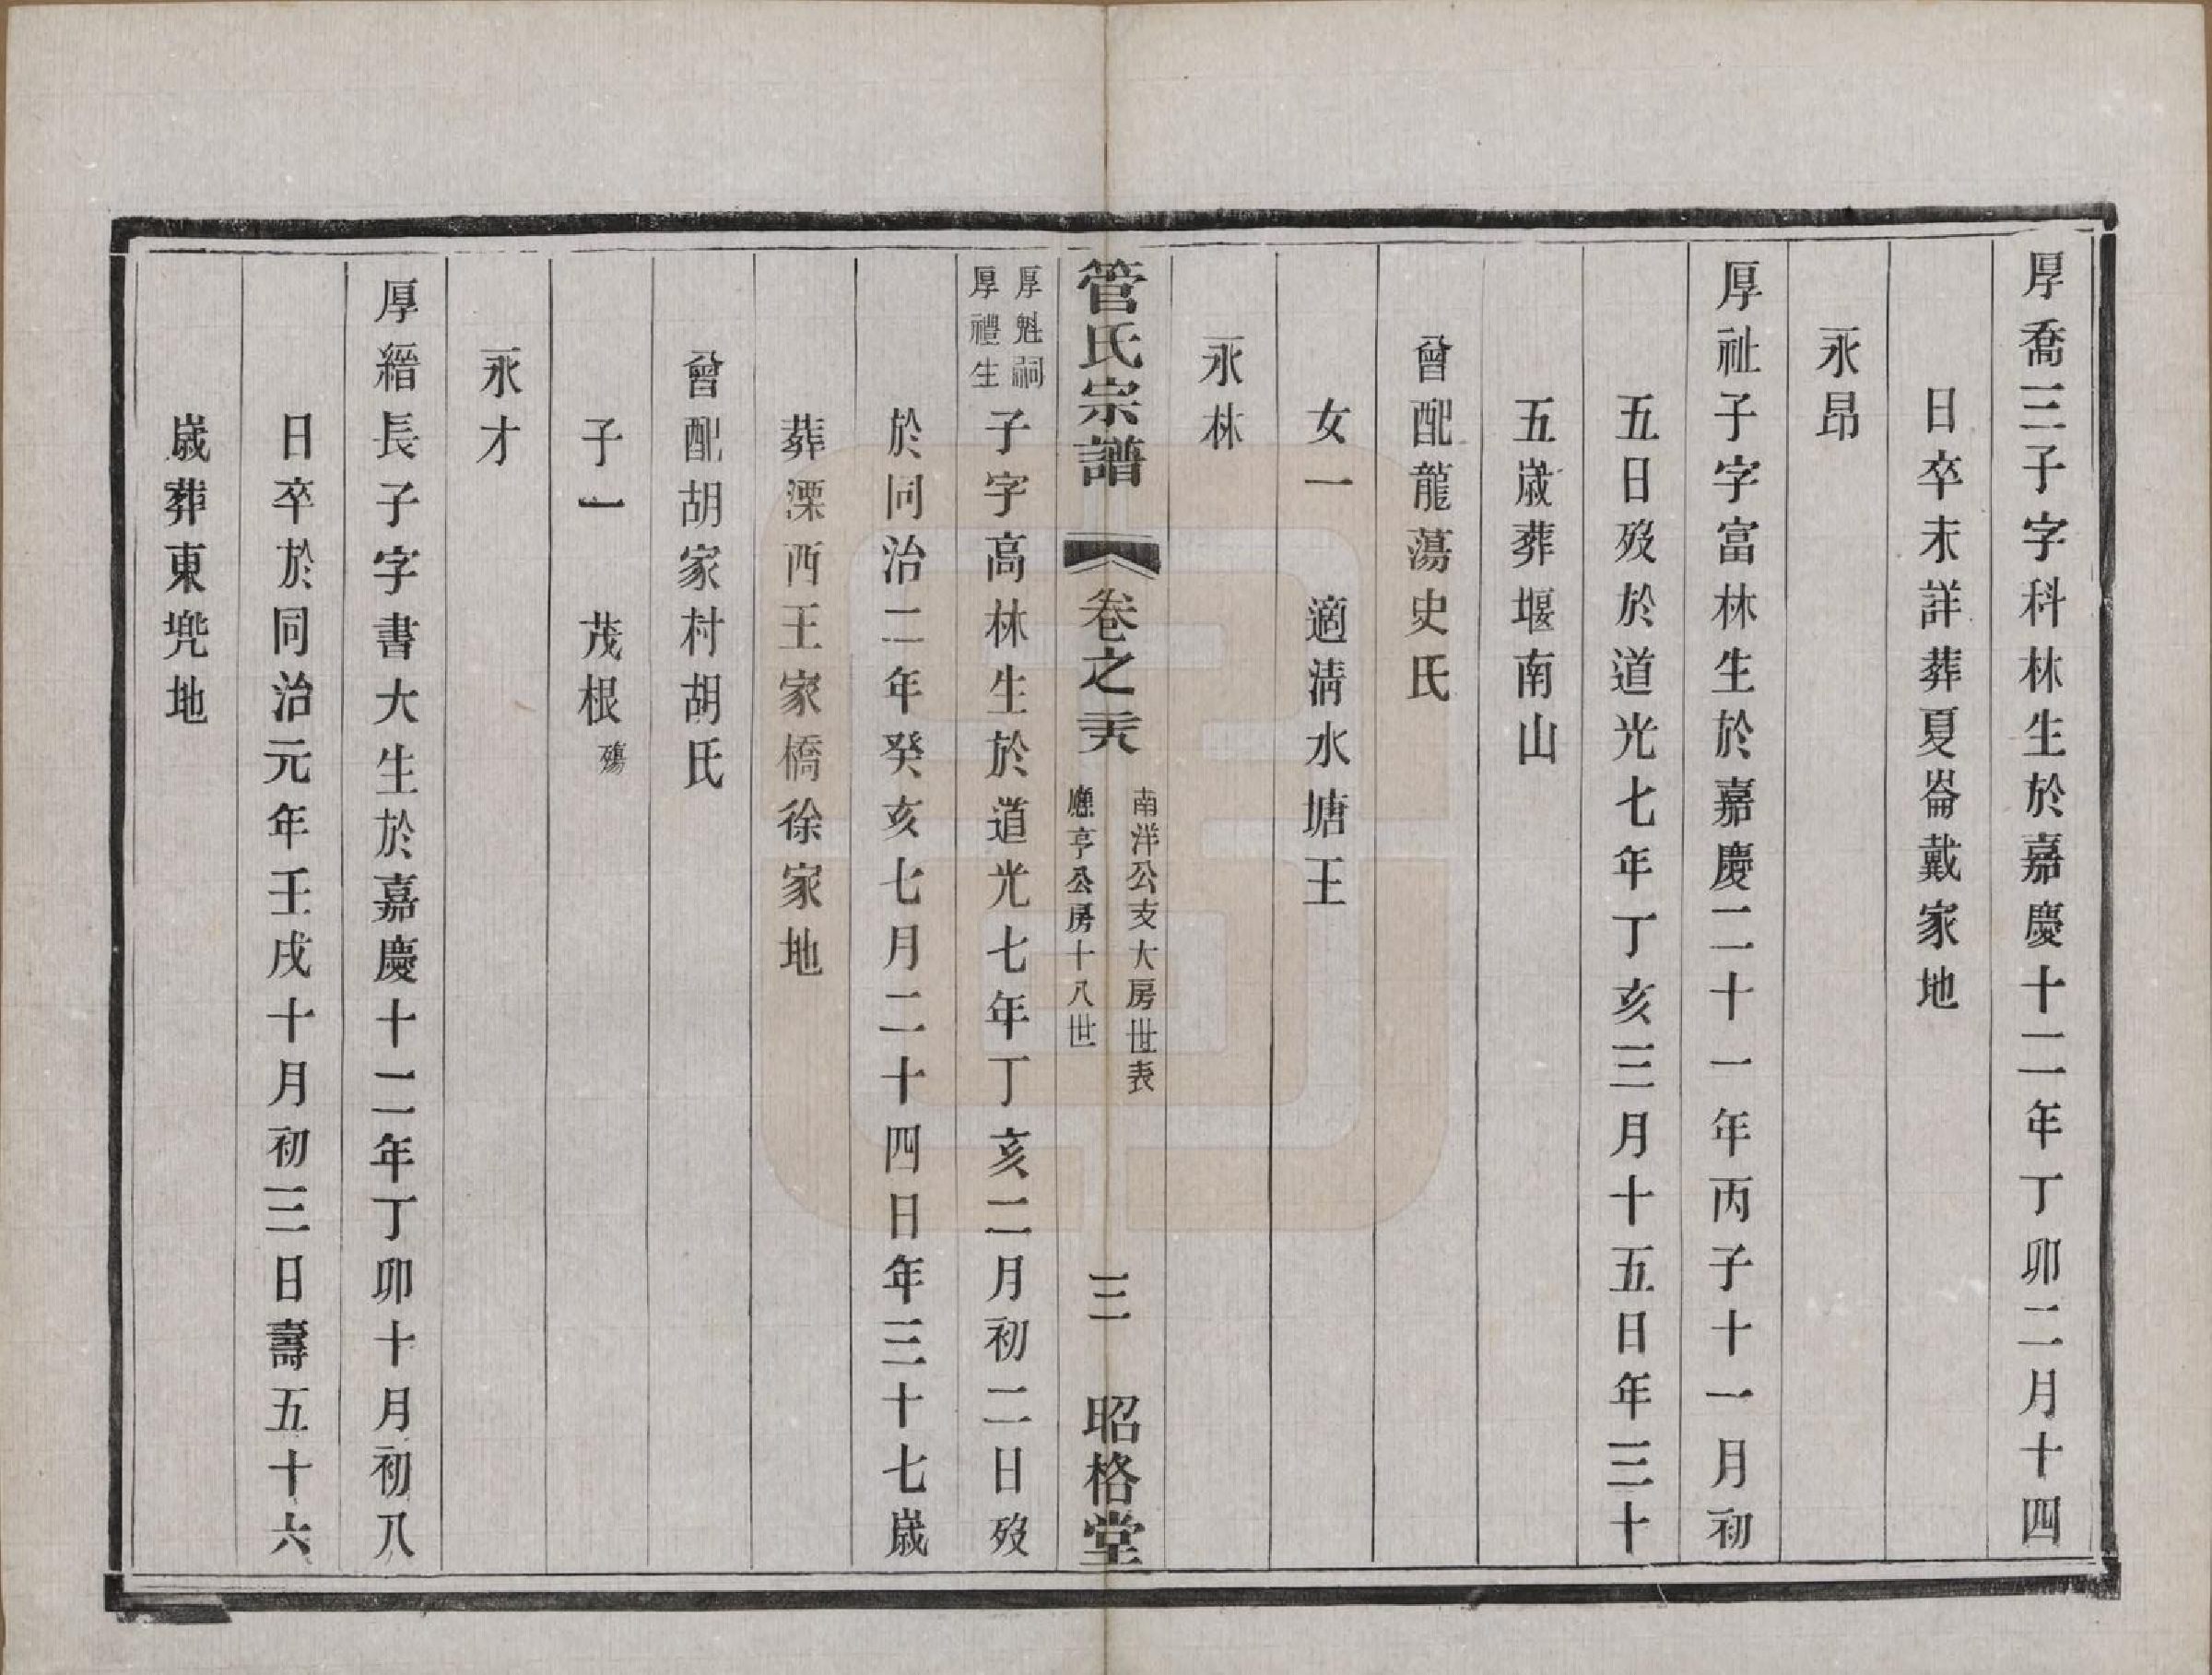 厚喬三子字科林生於嘉慶十二年丁卯二月十四
日卒未詳葬夏崙戴家地
永昂
厚祉子字富林生於嘉慶二十一年丙子十一月初
五日歿於道光七年丁亥三月十五日年三十
五歲葬堰南山
曾配龍蕩史氏
女一　適淸水塘王
永林
管氏宗譜　卷之
南洋公支大房世表
應亨公房十八世
三　昭格堂
厚魁嗣
厚禮生
子字高林生於道光七年丁亥二月初二日歿
於同治二年癸亥七月二十四日年三十七歲
葬溧西王家橋徐家地
曾配胡家村胡氏
子一　茂根殤
永才
厚縉長子字書大生於嘉慶十二年丁卯十月初八
日卒於同治元年壬戌十月初三日壽五十六
歲葬東兠地